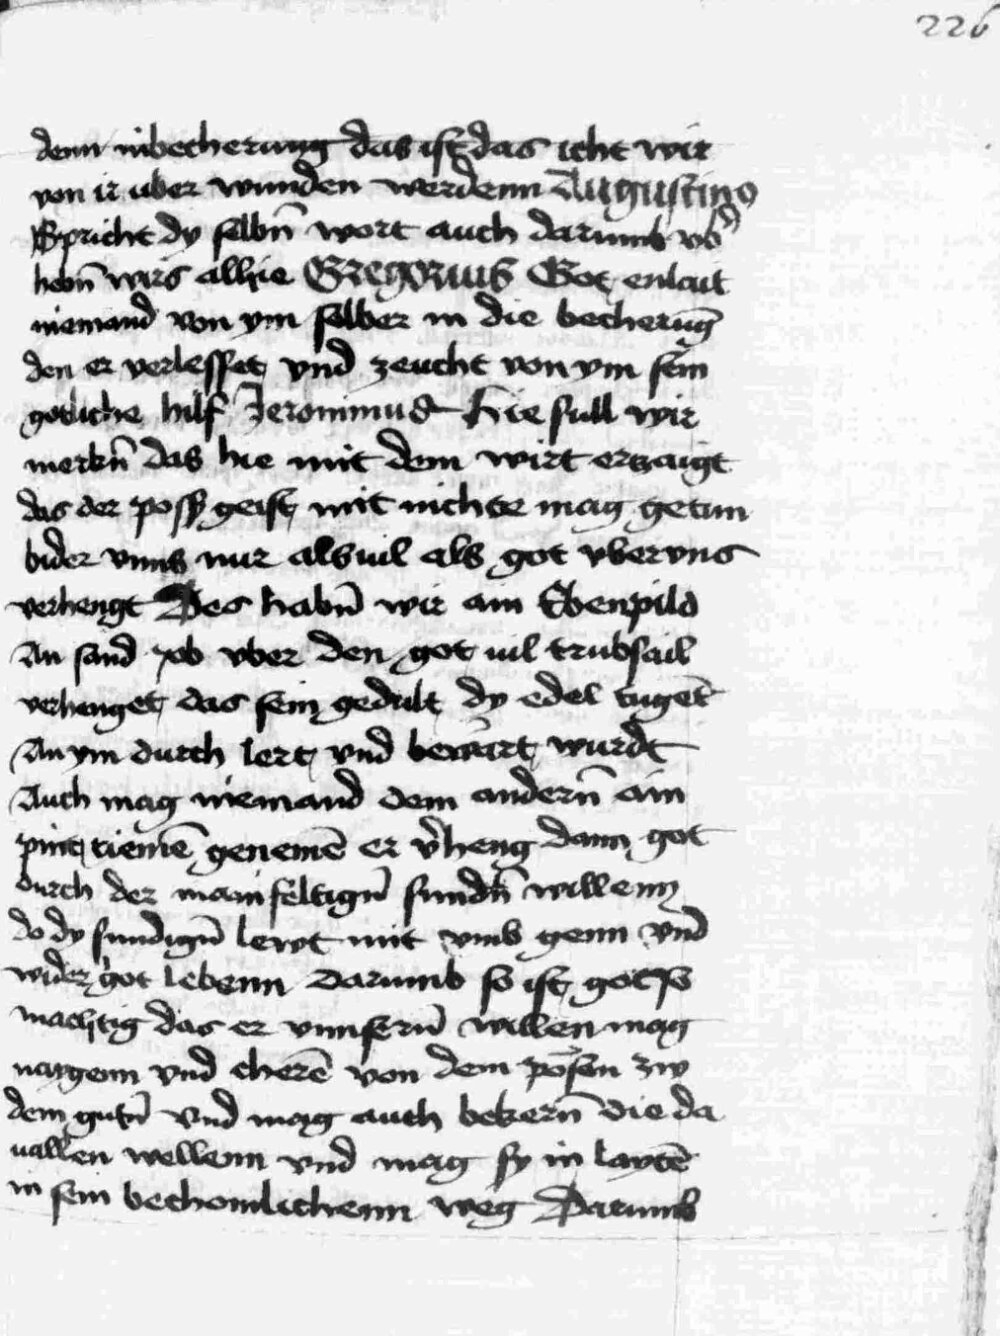 226
denn inbecherung das ist das icht wir
von ir uber wunden werdenn Augustin9
Spricht dy selbn̄ wort auch darumb vb
hebn̄ wirs allhie GREGORIUS Got enlait
niemand von ym selber in die becherūg
den er verlesset vnd zeucht von ym sein
gotliche hilf Jeronimus Hie sull wir
merkn̄ das hie mit dem wirt erzaigt
das der poss geist mit nichte mag getun
wider vnns nur alsuil als got vber vns
verhengt Des habn̄ wir ain Ebenpild
An sand Job vber den got uil trubsail
verhenget das sein gedult dy edel tugēt
An ym durch lert vnd bewart wurdt
Auch mag niemand dem andern̄ ain
pint riemē genemē er v̄heng dann got
durch der mainfeltign̄ sundn̄ willenn
do dy sundign̄ lewt mit vmb genn vnd
wider got lebenn Darumb so ist got so
machtig das er vnnsern̄ willen mag
naygenn vnd cherē von dem pösen zw
dem gutn̄ vnd mag auch bekern̄ die da
uallen wellenn vnd mag sy in laytē
in sein bechomlichenn weg Darumb